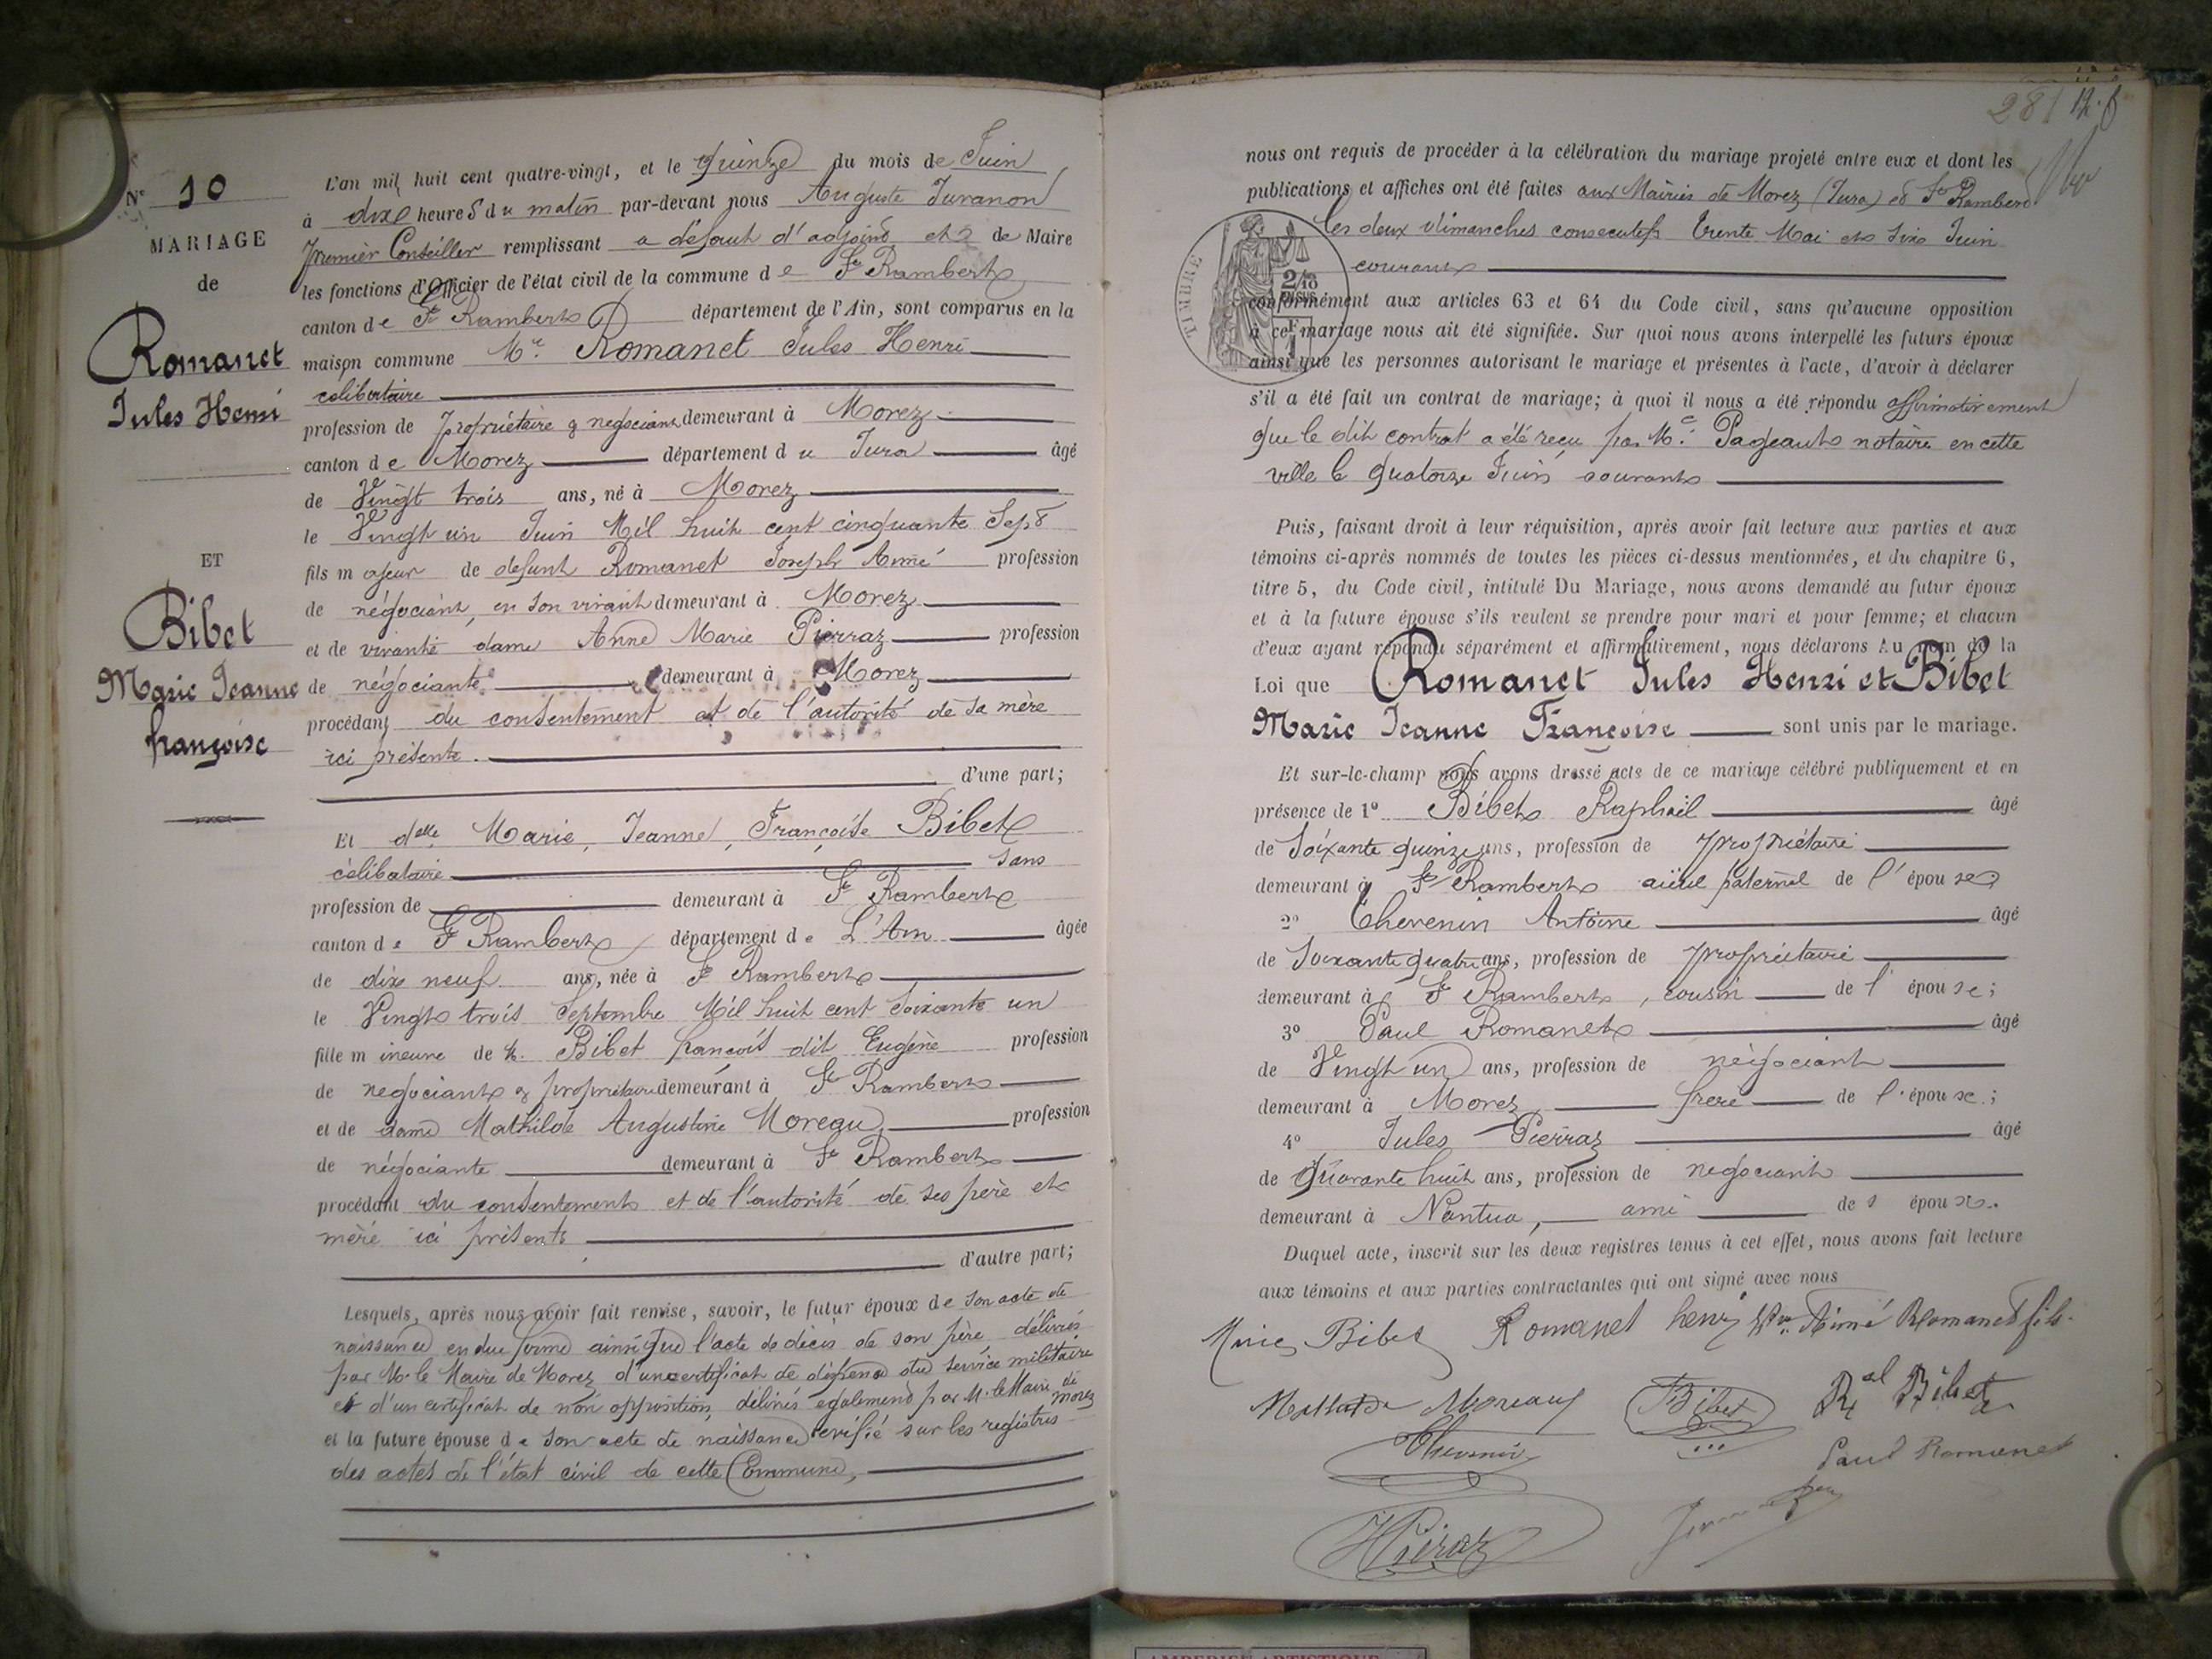 N° 10
MARIAGE
de
Romanet
Jules Henri
ET
Bibet
Marie Jeanne
françoise
L'an mil huit cent quatre-vingt, et le quinze du mois de Juin
à dix heures du matin par-devant nous Auguste Juvanon
premier Conseiller remplissant a défaut d'adjoint et de Maire
les fonctions d'Officier de l'état civil de la commune de St Rambert
canton de St Rambert département de l'Ain, sont comparus en la
maison commune Mr. Romanet Jules Henri
celibertaire
profession de propriétaire & negociant demeurant à Morez
canton de Morez département du Jura âgé
de Vingt trois ans, né à Morez
le Vingt un Juin Mil huit cent cinquante Sept
fils majeur de defunt Romanet Joseph Aimé profession
de négociant, en son vivant demeurant à Morez
et de vivante dame Anne Marie Pierraz profession
de négociante demeurant à Morez
procédant du consentement et de l'autorité de sa mère
ici présente.
d'une part;
Et delle Marie, Jeanne, Françoise Bibet
célibataire sans
profession de demeurant à St Rambert
canton de St Rambert département de L'Ain âgée
de dix neuf ans, née à St Rambert
le Vingt trois Septembre Mil huit cent soixante un
fille mineure de Bibet françois dit Eugène profession
de negociant & propriétaire demeurant à St Rambert
et de dame Mathilde Augustine Moreau profession
de négociante demeurant à St Rambert
procédant du consentement et de l'autorité de ses père et
mère ici présents
d'autre part;
Lesquels, après nous avoir fait remise, savoir, le futur époux de son acte de
naissance en due forme ainsi que l'acte de décès de son père, délivrés
par Mr le Maire de Morez d'un certificat de dispense du service militaire
et d'un certificat de non opposition, délivrés egalement par M. le Maire de Morez
et la future épouse de son acte de naissance vérifié sur les registres
des actes de l'état civil de cette Commune,
281
nous ont requis de procéder à la célébration du mariage projeté entre eux et dont les
publications et affiches ont été faites aux Mairies de Morez (Jura) et St Rambert
les deux dimanches consecutifs trente Mai et six Juin
courant
TIMBRE
2/10
conformément aux articles 63 et 64 du Code civil, sans qu'aucune opposition
à ce mariage nous ait été signifiée. Sur quoi nous avons interpellé les futurs époux
ainsi que les personnes autorisant le mariage et présentes à l'acte, d'avoir à déclarer
s'il a été fait un contrat de mariage; à quoi il nous a été répondu affirmativement
que le dit contrat a été reçu par Me. Pageaut notaire en cette
ville le quatorze Juin courant
Puis, faisant droit à leur réquisition, après avoir fait lecture aux parties et aux
témoins ci-après nommés de toutes les pièces ci-dessus mentionnées, et du chapitre 6,
titre 5, du Code civil, intitulé Du Mariage, nous avons demandé au futur époux
et à la future épouse s'ils veulent se prendre pour mari et pour femme; et chacun
d'eux ayant répondu séparément et affirmativement, nous déclarons Au nom de la
Loi que Romanet Jules Henri et Bibet
Marie Jeanne Françoise sont unis par le mariage.
Et sur-le-champ nous avons dressé acte de ce mariage célébré publiquement et en
présence de 1° Bibet Raphaël âgé
de Soixante quinze ans, profession de propriétaire
demeurant à St Rambert aïeul paternel de l'épouse
2° Thevenin Antoine âgé
de Soixante quatre ans, profession de propriétaire
demeurant à St Rambert, cousin de l'épouse;
3° Paul Romanet âgé
de Vingt un ans, profession de négociant
demeurant à Morez frere de l'épouse;
4° Jules Pierraz âgé
de Quarante huit ans, profession de negociant
demeurant à Nantua, ami des époux.
Duquel acte, inscrit sur les deux registres tenus à cet effet, nous avons fait lecture
aux témoins et aux parties contractantes qui ont signé avec nous
Marie Bibet Romanet henri Vve Aimé Romanet fils.
Mathilde Moreau Bibet Ral Bibet
Thevenin Paul Romanet
JPieraz